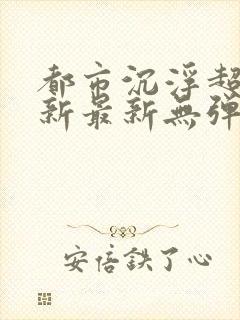 都市沉浮超
新最新無彈
安倍鉄了心